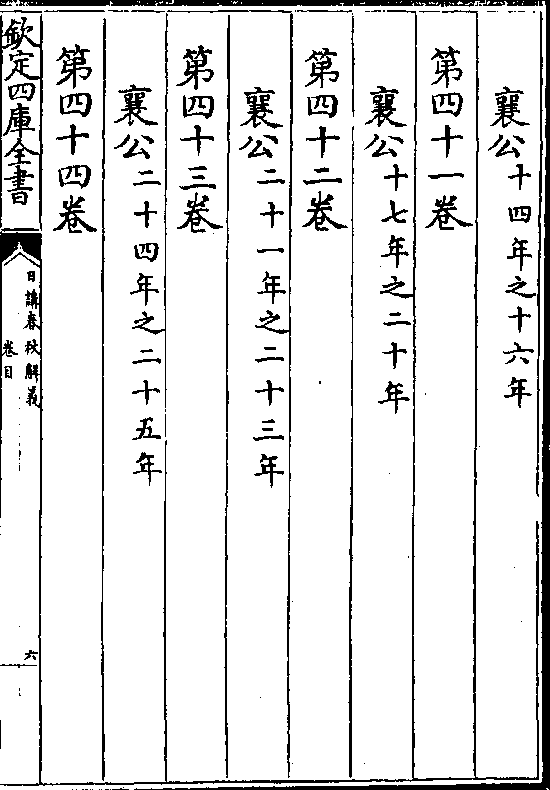 襄公十四年之十六年
第四十一卷
襄公十七年之二十年
第四十二卷
襄公二十一年之二十三年
第四十三卷
襄公二十四年之二十五年
第四十四卷
欽定四庫全書
日講春秋解義
卷目
六